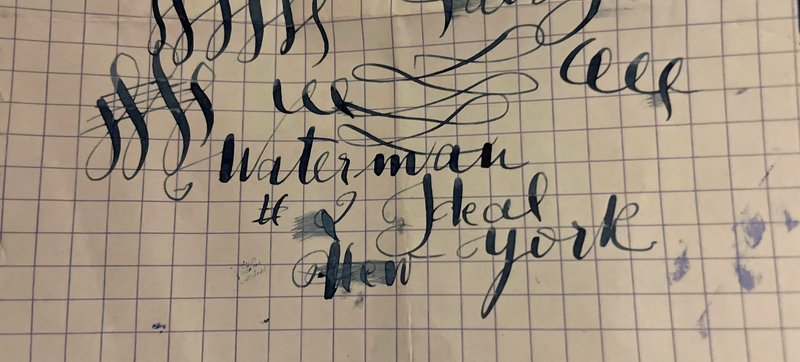 Waterman
# 2 Ideal
New York